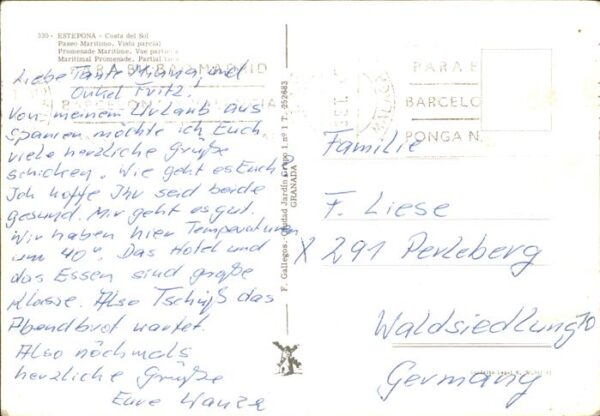 330 - ESTEPONA - Costa del Sol
Paseo Marítimo. Vista parcial
Promenade Maritime. Vue partielle
Maritimal Promenade. Partial
Liebe Tante Minna, und
Onkel Fritz.
Von meinem Urlaub aus
Spanien möchte ich Euch
viele herzliche Grüße
schicken. Wie geht es Euch?
Ich hoffe Ihr seid beide
gesund. Mir geht es gut.
Wir haben hier Temperaturen
um 40°. Das Hotel und
das Essen sind große
Klasse. Also Tschüß das
Abendbrot wartet.
Also nochmals
herzliche Grüße
Eure
PARA
MADRID
BARCELON
F. Gallegos. - Ciudad Jardín Grupo 1 nº 1 T. 252683
GRANADA
MALAGA
PARA E
BARCELO
PONGA N
Familie
F. Liese
X 291 Perleberg
Waldsiedlung 70
Germany